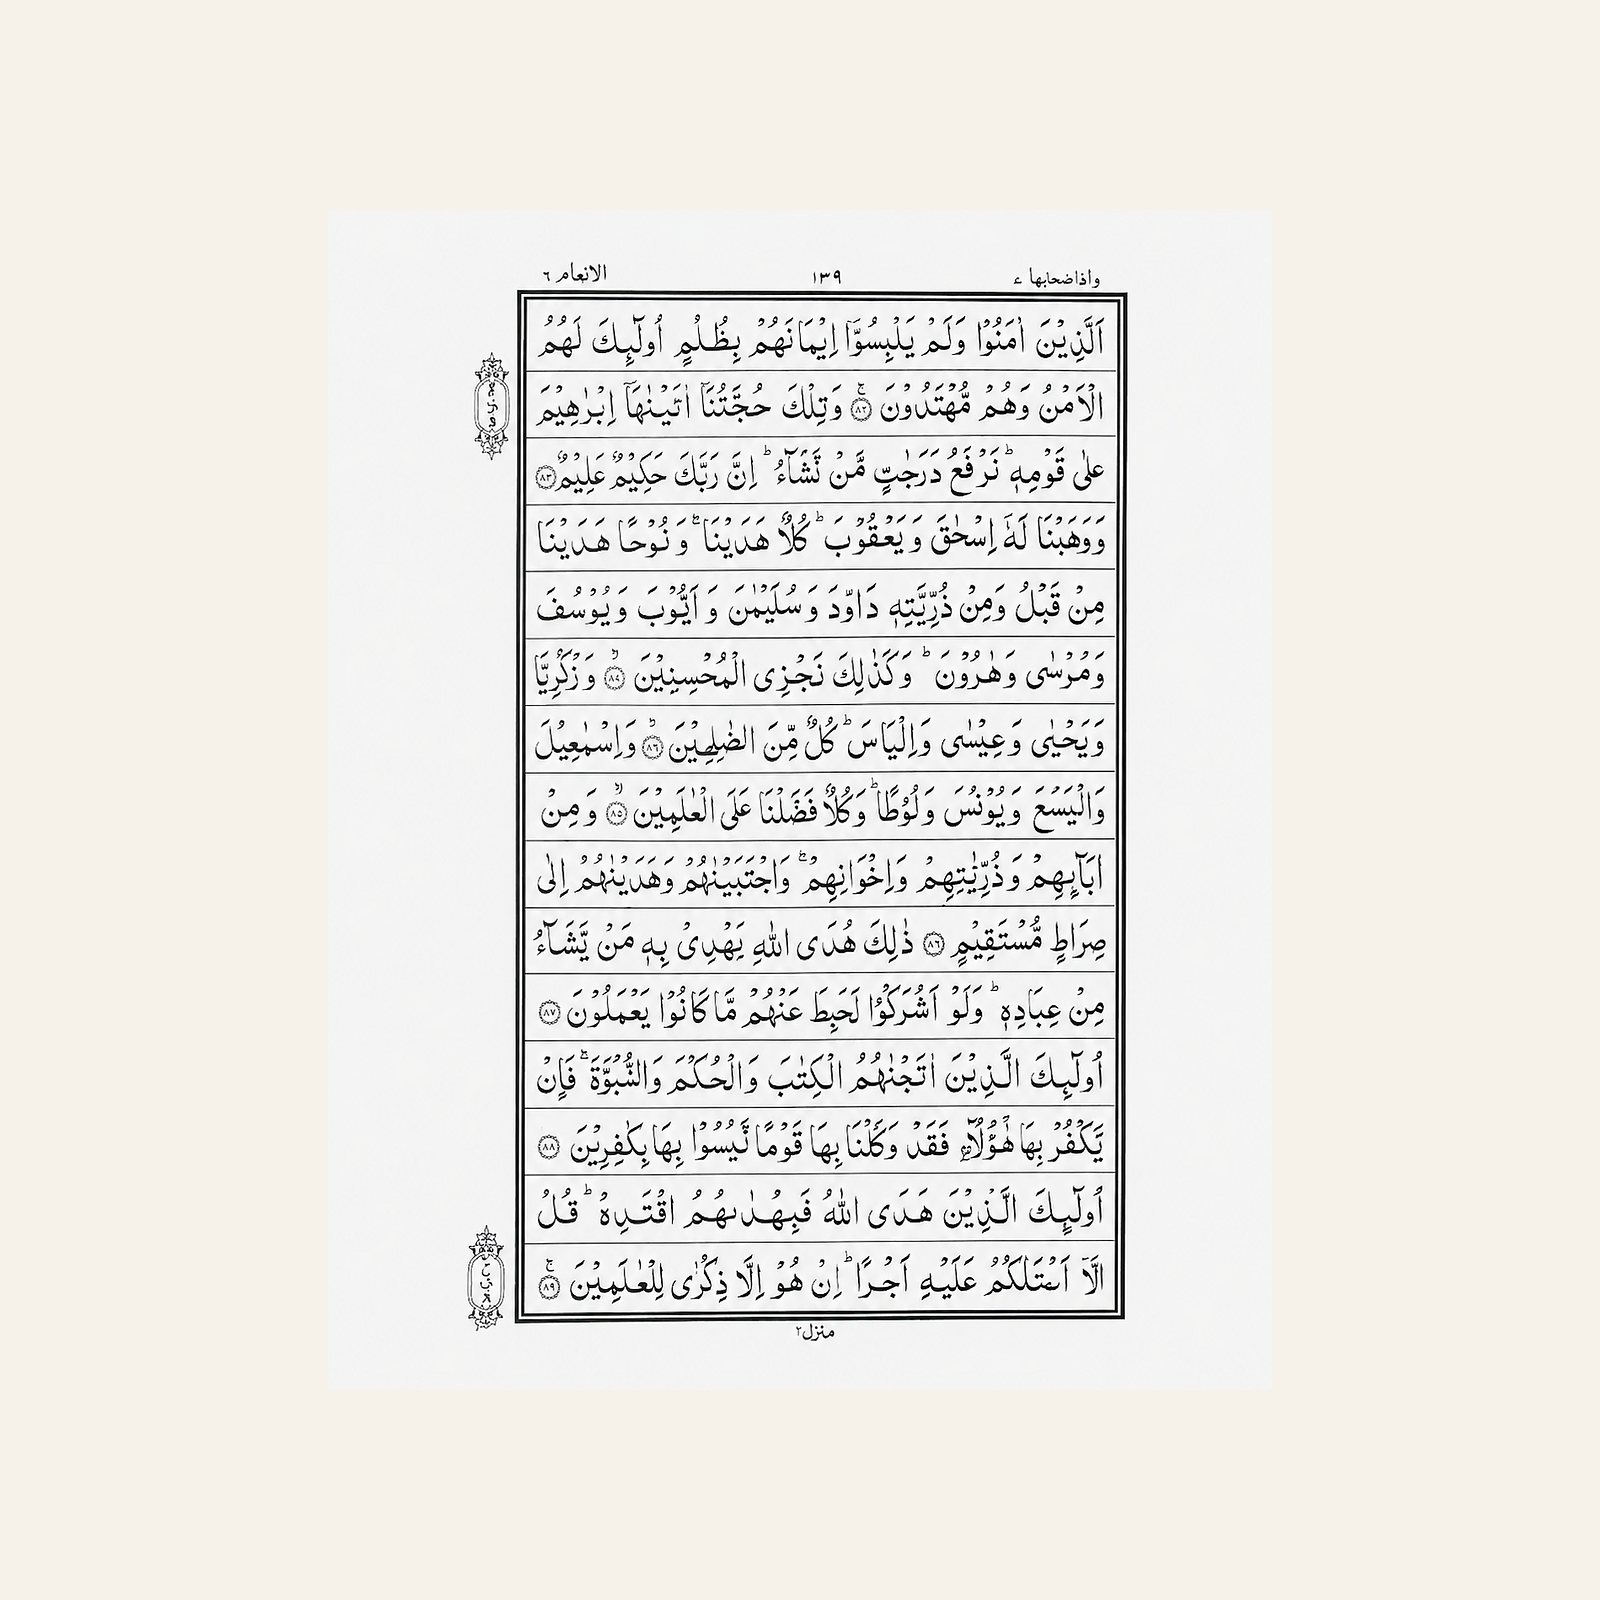 واذاضحابها ء ١٣٩ الانعام ٦
اَلَّذِيْنَ اٰمَنُوْا وَلَمْ يَلْبِسُوْٓا اِيْمَانَهُمْ بِظُلْمٍ اُولٰٓئِكَ لَهُمُ
الْاَمْنُ وَهُمْ مُّهْتَدُوْنَ ۚ ٨٢ وَتِلْكَ حُجَّتُنَآ اٰتَيْنٰهَآ اِبْرٰهِيْمَ
عَلٰى قَوْمِهٖ ؕ نَرْفَعُ دَرَجٰتٍ مَّنْ نَّشَآءُ ؕ اِنَّ رَبَّكَ حَكِيْمٌ عَلِيْمٌ ٨٣
وَوَهَبْنَا لَهٗ اِسْحٰقَ وَيَعْقُوْبَ ؕ كُلًّا هَدَيْنَا ۚ وَنُوْحًا هَدَيْنَا
مِنْ قَبْلُ وَمِنْ ذُرِّيَّتِهٖ دَاوٗدَ وَسُلَيْمٰنَ وَاَيُّوْبَ وَيُوْسُفَ
وَمُرْسٰى وَهٰرُوْنَ ؕ وَكَذٰلِكَ نَجْزِى الْمُحْسِنِيْنَ ۙ ٨٤ وَزَكَرِيَّا
وَيَحْيٰى وَعِيْسٰى وَاِلْيَاسَ ؕ كُلٌّ مِّنَ الضّٰلِحِيْنَ ۙ ٨٦ وَاِسْمٰعِيْلَ
وَالْيَسَعَ وَيُوْنُسَ وَلُوْطًا ؕ وَكُلًّا فَضَّلْنَا عَلَى الْعٰلَمِيْنَ ۙ ٨٥ وَمِنْ
اٰبَآئِهِمْ وَذُرِّيّٰتِهِمْ وَاِخْوَانِهِمْ ۚ وَاجْتَبَيْنٰهُمْ وَهَدَيْنٰهُمْ اِلٰى
صِرَاطٍ مُّسْتَقِيْمٍ ٨٦ ذٰلِكَ هُدَى اللّٰهِ يَهْدِىْ بِهٖ مَنْ يَّشَآءُ
مِنْ عِبَادِهٖ ؕ وَلَوْ اَشْرَكُوْا لَحَبِطَ عَنْهُمْ مَّا كَانُوْا يَعْمَلُوْنَ ٨٧
اُولٰٓئِكَ الَّذِيْنَ اٰتَجْنٰهُمُ الْكِتٰبَ وَالْحُكْمَ وَالنُّبُوَّةَ ۚ فَاِنْ
يَّكْفُرْ بِهَا هٰٓؤُلَآءِ فَقَدْ وَكَّلْنَا بِهَا قَوْمًا لَّيْسُوْا بِهَا بِكٰفِرِيْنَ ٨٨
اُولٰٓئِكَ الَّذِيْنَ هَدَى اللّٰهُ فَبِهُدٰىهُمُ اقْتَدِهْ ؕ قُلْ
اَلَّآ عَلَيْهِ اَجْرًا ؕ اِنْ هُوَ اِلَّا ذِكْرٰى لِلْعٰلَمِيْنَ ۚ ٨٩
منزل٢